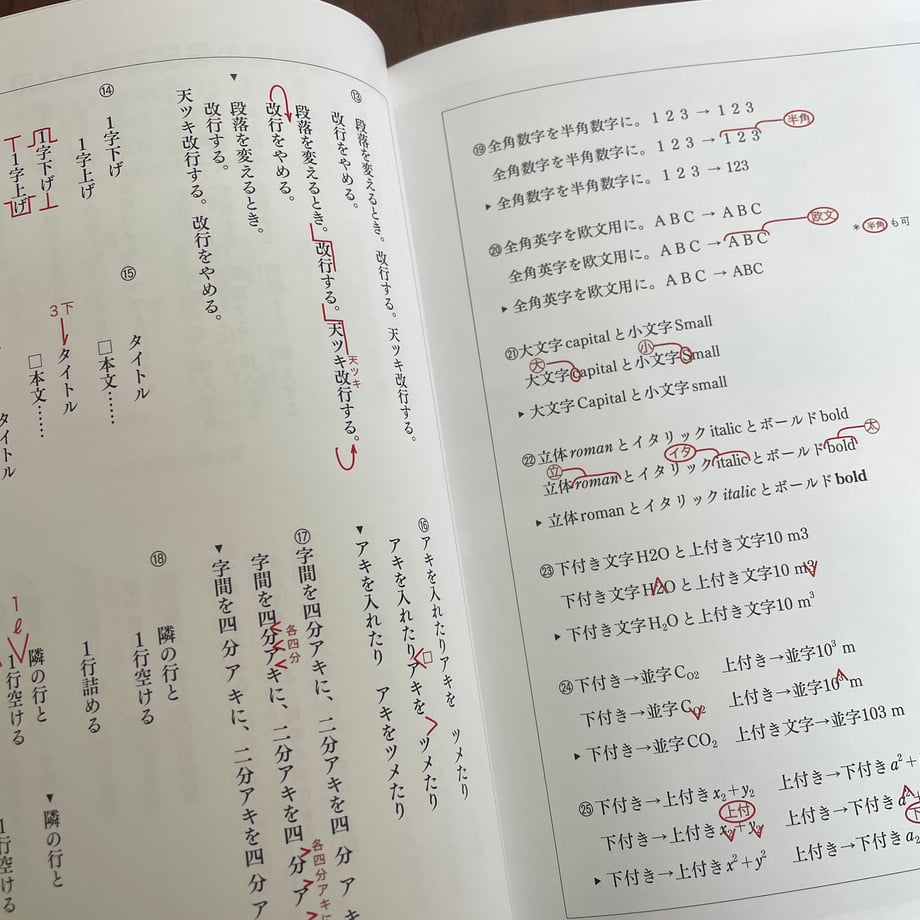 ⑬
段落を変えるとき。改行する。天ツキ改行する。
改行をやめる。
段落を変えるとき。改行する。天ツキ改行する。
天ツキ
改行をやめる。
▼
段落を変えるとき。
改行する。
天ツキ改行する。改行をやめる。
⑭
1字下げ
1字上げ
1字下げ
1字上げ
⑮
タイトル
□本文……
3下
タイトル
□本文……
タイトル
⑯
アキを入れたりアキを ツメたり
アキを入れたりアキを ツメたり
□
▼
アキを入れたり アキをツメたり
⑰
字間を四分アキに、二分アキを四 分 ア キ
各四分
字間を四分アキに、二分アキを四 分 ア
各四分アキに
▼
字間を四 分 ア キに、二分アキを四 分 ア
⑱
隣の行と
1行空ける
1行詰める
隣の行と
1行空ける
1ℓ
▼
隣の行と
1行空ける
⑲全角数字を半角数字に。1 2 3 → 1 2 3
全角数字を半角数字に。1 2 3 → 1 2 3
半角
▶全角数字を半角数字に。1 2 3 → 123
⑳全角英字を欧文用に。A B C → A B C
全角英字を欧文用に。A B C → A B C
欧文
*半角も可
▶全角英字を欧文用に。A B C → ABC
㉑大文字capitalと小文字Small
大 小
大文字capitalと小文字Small
▶大文字Capitalと小文字small
㉒立体romanとイタリックitalicとボールドbold
立 イタ 太
立体romanとイタリックitalicとボールドbold
▶立体romanとイタリックitalicとボールドbold
㉓下付き文字H2Oと上付き文字10 m3
下付き文字H2Oと上付き文字10 m3
▶下付き文字H₂Oと上付き文字10 m³
㉔下付き→並字C₀₂ 上付き→並字10³ m
下付き→並字C₀₂ 上付き→並字10³ m
▶下付き→並字CO₂ 上付き文字→並字103 m
㉕下付き→上付きx₂+y₂ 上付き→下付きa²+
上付
下付き→上付きx₂+y₂ 上付き→下付きa²+
▶下付き→上付きx²+y² 上付き→下付きa₂